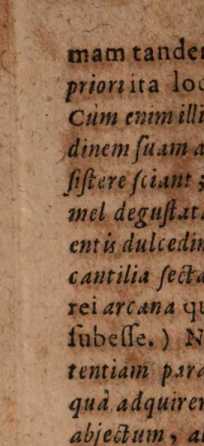 mam tander
priori ita loc
Cùm enim illi
dinem ſuam a
ſiſtere ſciant ;
mel deguſtat
entis dulcedin
cantilia ſecta
rei arcana qu
ſubeſſe. ) N
tentiam para
quà adquirer
abjectum, a